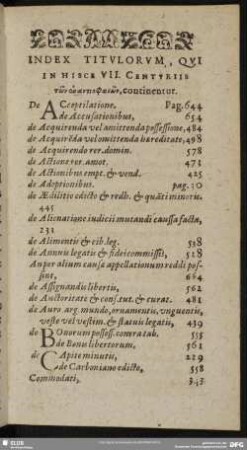 INDEX TITVLORVM, QVI
IN HISCE VII. CENTVRIIS
continentur.
De ACceptilatione. Pag. 644
de Accusationibus, 654
de Acquirenda vel amittenda possessione, 484
de Acquirēda vel omittenda hereditate, 498
de Acquirendo rer. domin. 578
de Actione rer. amot. 473
de Actionibus empt. & vend. 425
de Adoptionibus. pag. 10
de Ædilitio edicto & redh. & quāti minoris.
445
de Alienatione iudicii mutandi caussa facta,
231
de Alimentis & cib. leg. 538
de Annuis legatis & fideicommissis, 518
An per alium causæ appellationum reddi pos-
sint, 664
de Assignandis libertis, 562
de Auctoritate & cons. tut. & curat. 481
de Auro arg. mundo, ornamentis, vnguentis,
veste vel vestim. & statuis legatis, 439
de BOnorum possess. contra tab. 555
de Bonis libertorum, 561
de CApite minutis, 229
de Carboniano edicto, 558
Commodati,